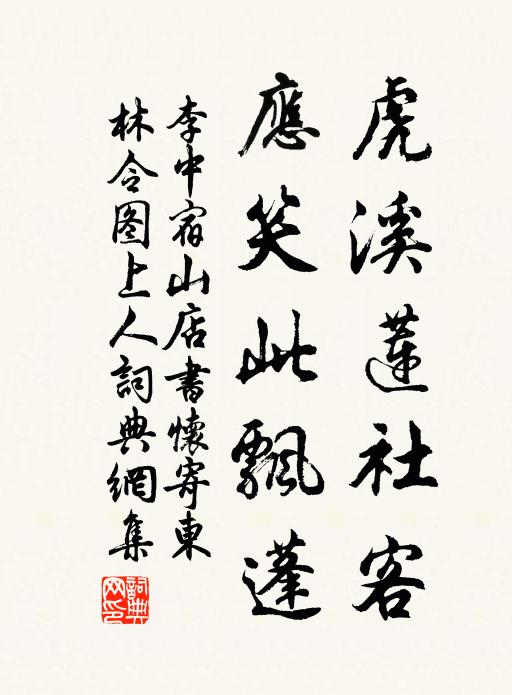 虎溪蓮社客
應笑此飄蓬
李中宿山店書懷寄東
林令图上人詞典網集
詞典
网印